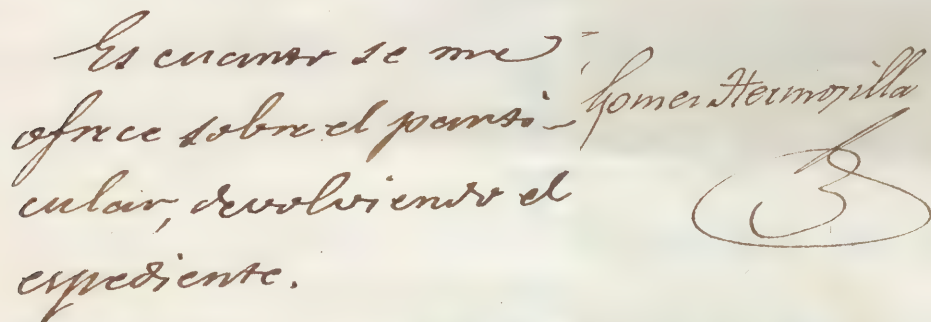 Es cuanto se me
ofrece sobre el parti-
cular, devolviendo el
espediente.
Gomez Hermosilla